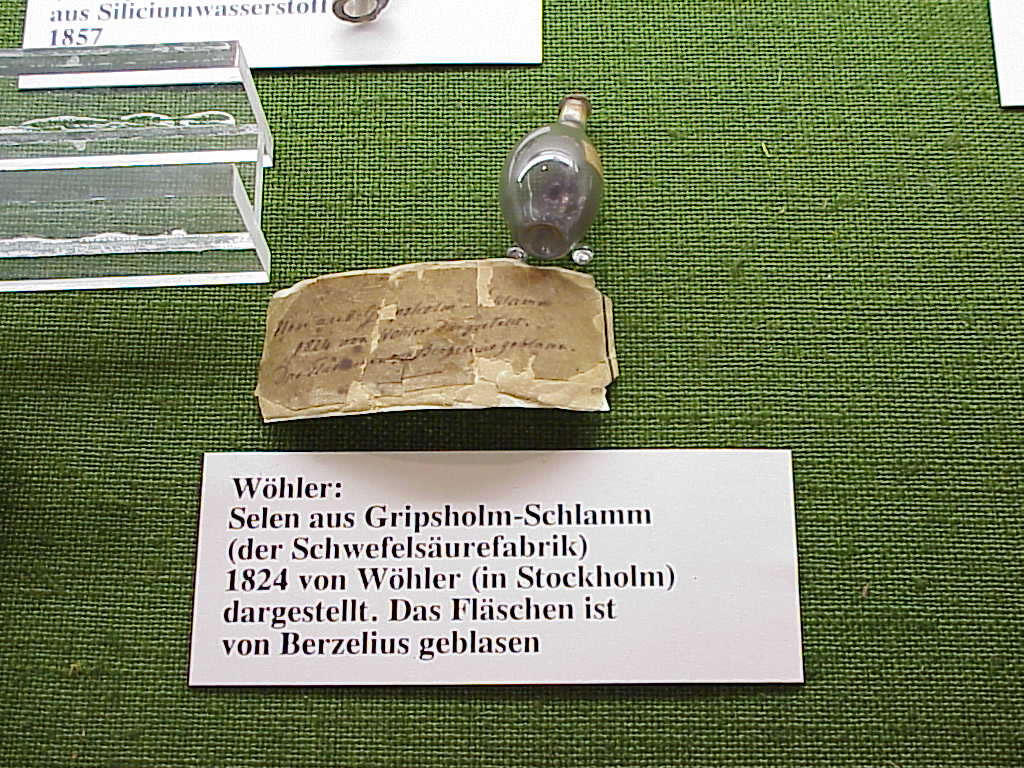 aus Siliciumwasserstoff
1857
aus Gripsholm-Schlamm
1824 von Wöhler dargestellt.
Berzelius geblasen.
Wöhler:
Selen aus Gripsholm-Schlamm
(der Schwefelsäurefabrik)
1824 von Wöhler (in Stockholm)
dargestellt. Das Fläschen ist
von Berzelius geblasen